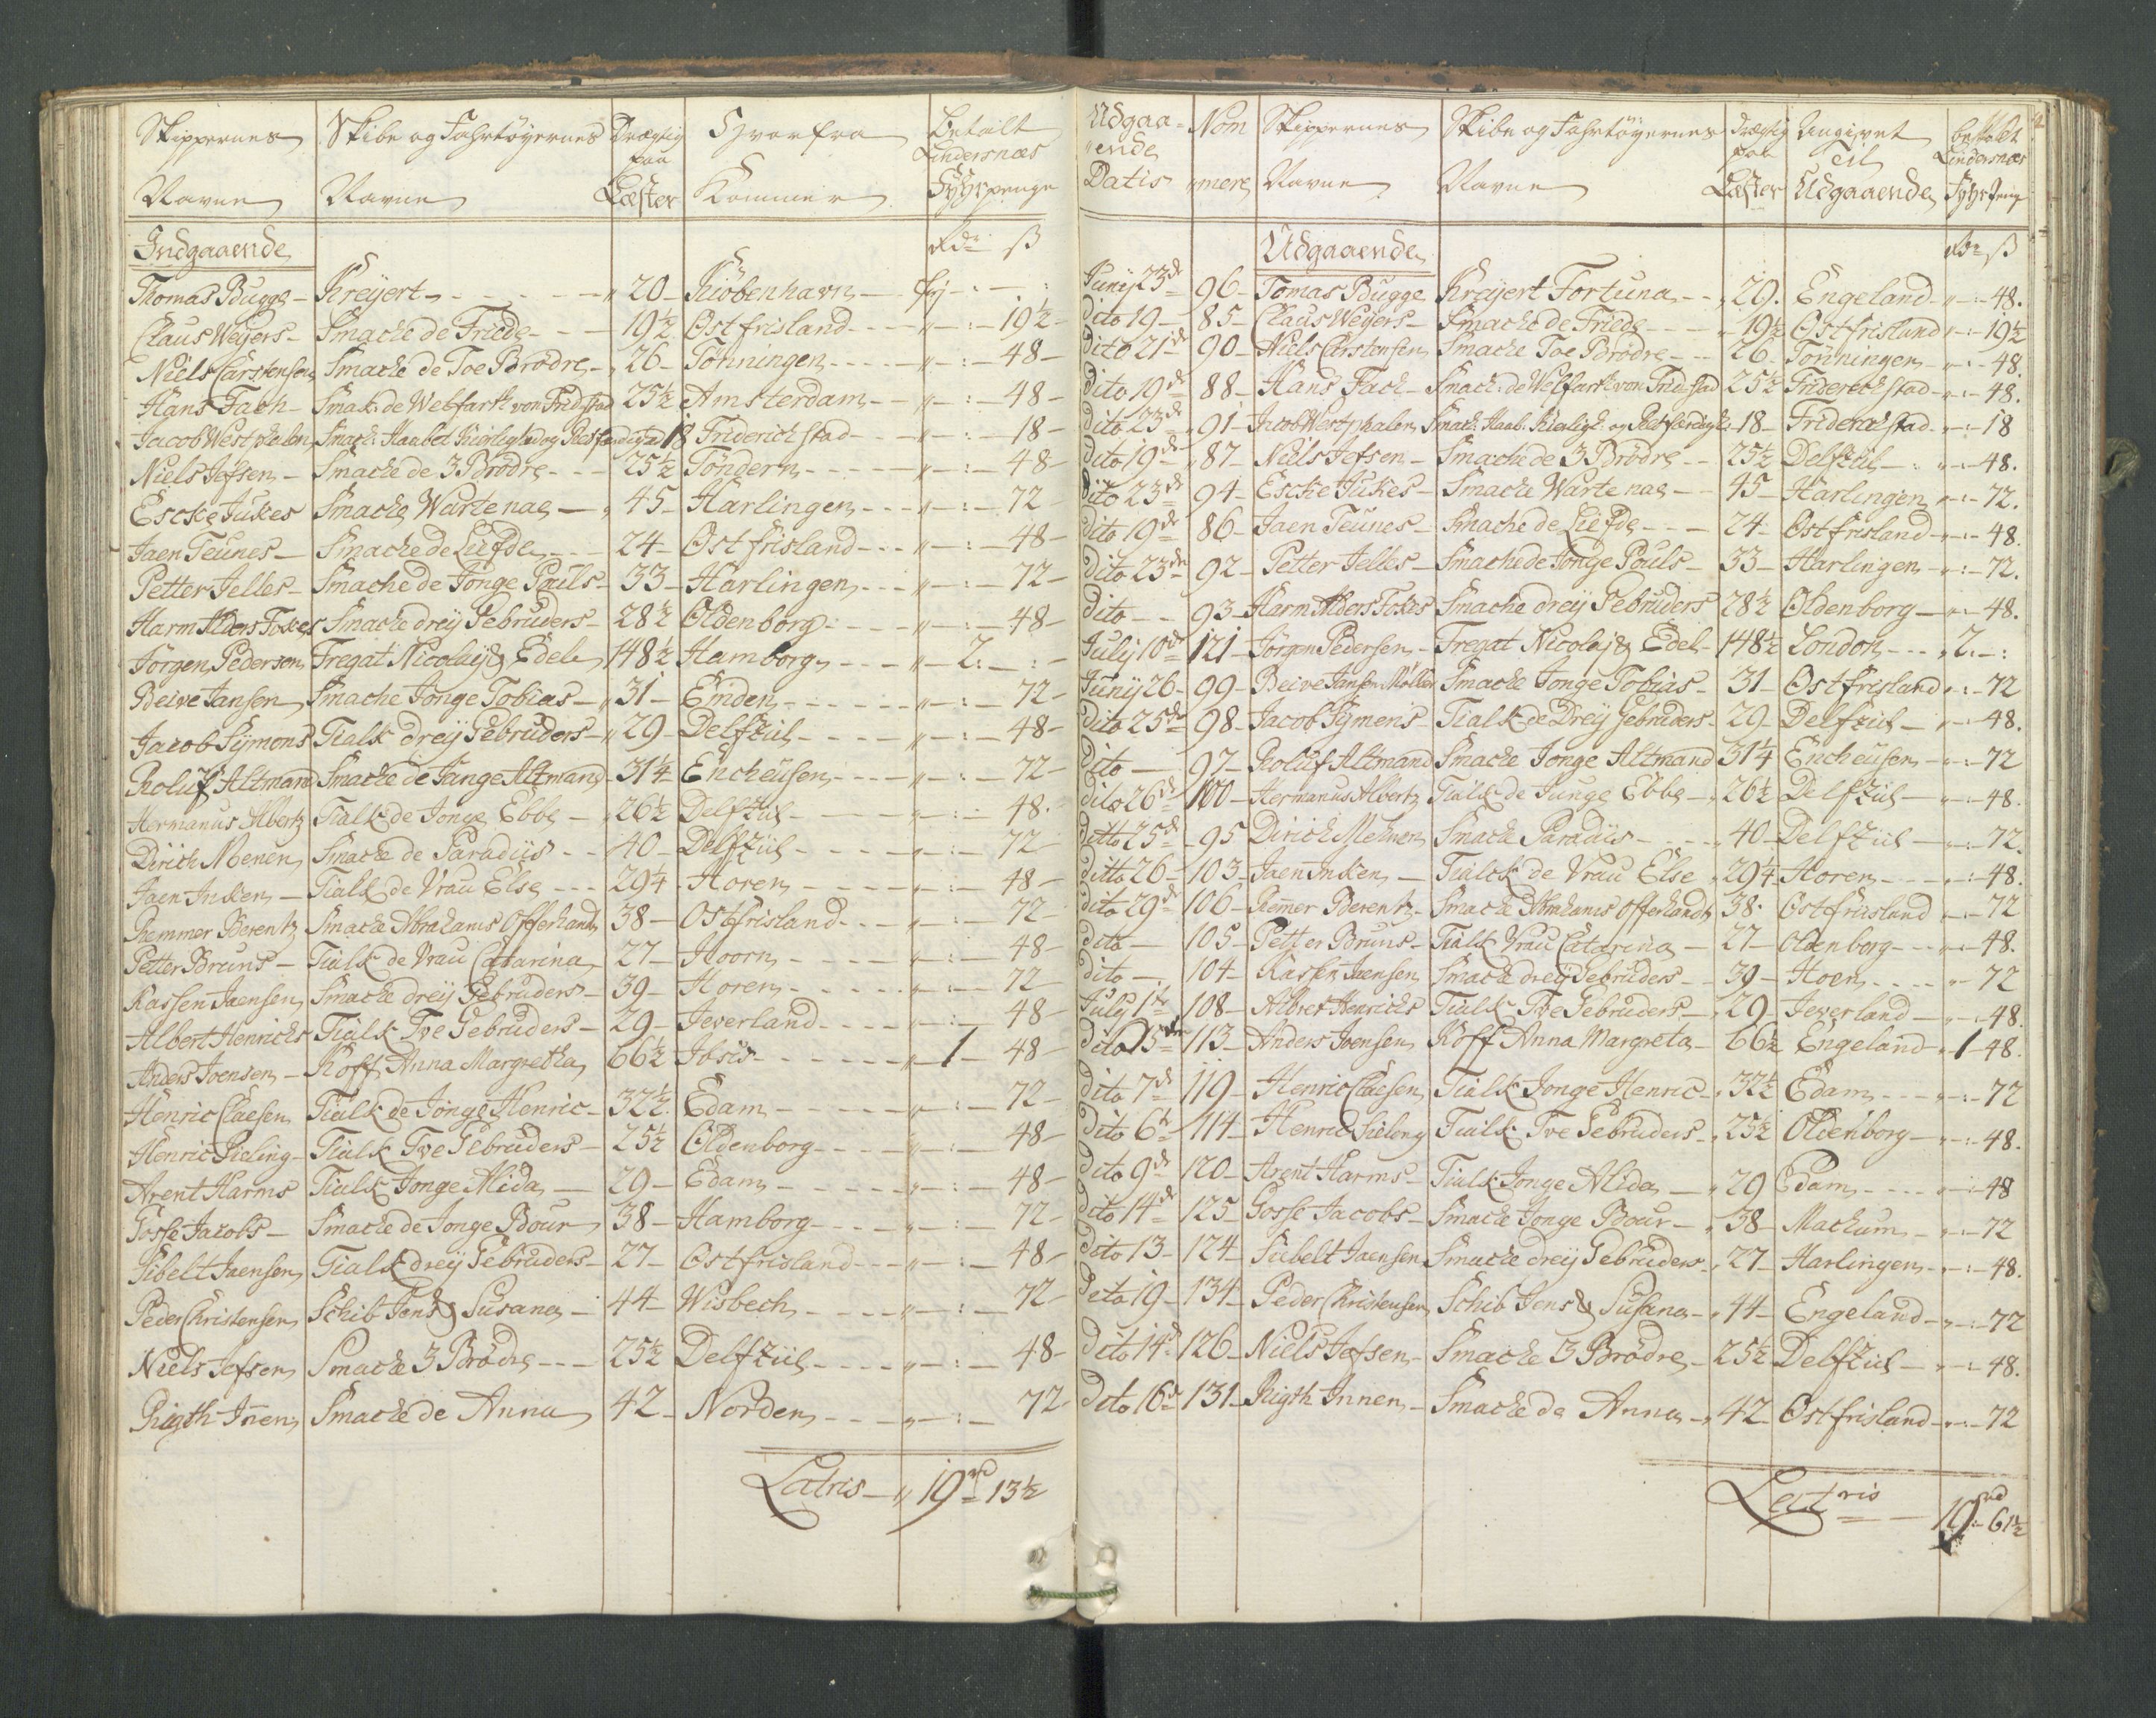 Skippernes Navne | Skibe og Fahrtøyernes Navne | Drægtig paa Læster | Hvorfra Kommer | Betalt Lindersnæs Fyhrpenge
Indgaaende | | | | Rdr ß
Thomas Bugge | Kreyert | 20 | Kiöbenhavn | fry
Claus Weyers | Smacke de Friede | 19½ | Ostfrisland | 19½
Niels Carstensen | Smacke de Toe Brödre | 26 | Tönningen | 48
Hans Fach | Smak: de Welfarth von Fridstad | 25½ | Amsterdam | 48
Jacob Westphalen | Smack: Haabet Kierlighed og Redfærdighed | 18 | Friderichstad | 18
Niels Jefsen | Smacke de 3 Brödre | 25½ | Töndern | 48
Escke Jukes | Smacke Wartenae | 45 | Harlingen | 72
Jaen Teunes | Smacke de Liefde | 24 | Ostfrisland | 48
Petter Jelles | Smacke de Jonge Pauls | 33 | Harlingen | 72
Harm Alders Fokes | Smacke dreÿ Gebruders | 28½ | Oldenborg | 48
Jörgen Pedersen | Fregat Nicolaÿ & Edel | 148½ | Hamborg | 2
Beive Jansen | Smacke Jonge Tobias | 31 | Emden | 72
Jacob Symons | Tialk dreÿ Gebruders | 29 | Delfziil | 48
Roluf Altmand | Smacke de Junge Altmand | 31¼ | Encheusen | 72
Hermanus Albertz | Tialk de Jonge Ebbe | 26½ | Delfziil | 48
Dirich Menen | Smacke de Paradiis | 40 | Delfziil | 72
Jaen Inken | Tialk de Vrau Else | 29¼ | Horen | 48
Remmer Berentz | Smacke Abrahams Offerhande | 38 | Ostfrisland | 72
Petter Bruns | Tialk de Vrau Catarina | 27 | Hoorn | 48
Kassen Jaensen | Smacke dreÿ Gebruders | 39 | Horen | 72
Albert Henrichs | Tialk Tve Gebruders | 29 | Jeverland | 48
Anders Joensen | Koff Anna Margretha | 66½ | Ibsis | 1 48
Henric Claesen | Tialk de Jonge Henric | 32½ | Edam | 72
Henric Sieling | Tialk Tve Gebruders | 25½ | Oldenborg | 48
Arent Harms | Tialk Jonge Alida | 29 | Edam | 48
Gosse Jacobs | Smacke de Jonge Bour | 38 | Hamborg | 72
Sibelt Jaensen | Tialk dreÿ Gebruders | 27 | Ostfrisland | 48
Peder Christensen | Schib Jens & Susana | 44 | Wisbech | 72
Niels Jefsen | Smacke 3 Brödre | 25½ | Delfziil | 48
Rigth Innen | Smacke de Anna | 42 | Norden | 72
Latris 19 rd 13½
Udgaaende Datis | Nommere | Skippernes Navne | Skibe og Fahrtøyernes Navne | Drægtig paa Læster | Angivet Til Udgaaende | betaldt Lindersnæs Fyhrpenge
Udgaaende | Rdr ß
Junÿ 23de | 96 | Tomas Bugge | Kreÿert Fortuna | 20. | Engeland | 48.
Dito 19 | 85 | Claus Weyers | Smacke de Friede | 19½ | Ostfrisland | 19½
Dito 21de | 90 | Niels Carstensen | Smacke Toe Brödre | 26 | Tönningen | 48.
Dito 19de | 88 | Hans Fach | Smack: de Welfarth von Fridstad | 25½ | Friderichstad | 48.
Dito 23de | 91 | Jacob Westphalen | Smack: Haab: Kierligh: og Retfærdigh: | 18 | Friderichstad | 18
Dito 19de | 87 | Niels Jefsen | Smacke de 3 Brödre | 25½ | Delfziil | 48.
Dito 23de | 94 | Escke Jukes | Smacke Wartenae | 45 | Harlingen | 72.
Dito 19de | 86 | Jaen Teunes | Smacke de Liefde | 24 | Ostfrisland | 48.
Dito 23de | 92 | Petter Jelles | Smacke de Jonge Pouls | 33 | Harlingen | 72.
Dito | 93 | Harm Alders Fokes | Smacke dreÿ Gebruders | 28½ | Oldenborg | 48.
Julÿ 10de | 121 | Jörgen Pedersen | Fregat Nicolaÿ & Edel | 148½ | London | 2.
Junÿ 26 | 99 | Beive Jansen Möller | Smacke Jonge Tobias | 31 | Ostfrisland | 72
Dito 25de | 98 | Jacob Symens | Tialk de Dreÿ Gebruders | 29 | Delfziil | 48.
Dito | 97 | Roluf Altmand | Smacke Jonge Altmand | 31¼ | Encheusen | 72
Dito 26de | 100 | Hermanus Albertz | Tialk de Junge Ebbe | 26½ | Delfziil | 48.
Ditto 25de | 95 | Dirich Mehnen | Smacke Paradiis | 40 | Delfziil | 72.
Ditto 26 | 103 | Jaen Inken | Tialck de Vrau Else | 29¼ | Horen | 48.
Dito 29de | 106 | Remer Berentz | Smacke Abrahams Offerhande | 38. | Ostfrisland | 72
Dito | 105 | Petter Bruns | Tialk Vrau Catarina | 27 | Oldenborg | 48.
Dito | 104 | Kassen Jaensen | Smacke dreÿ Gebruders | 39 | Hoen | 72
Julÿ 1te | 108 | Albret Henrichs | Tialk Tve Gebruders | 29 | Jeverland | 48.
Dito 5te | 113 | Anders Joensen | Koff Anna Margreta | 66½ | Engeland | 1 48.
Dito 7de | 119 | Henric Claesen | Tialk Jonge Henric | 32½ | Edam | 72
Dito 6te | 114 | Henric Sieleng | Tialk Tve Gebruders | 25½ | Oldenborg | 48.
Dito 9de | 120 | Arent Harms | Tialk Jonge Alida | 29 | Edam | 48
Dito 14de | 125 | Gosse Jacobs | Smacke Jonge Bour | 38 | Mackum | 72
Dito 13 | 124 | Siebelt Jaensen | Smacke dreÿ Gebruders | 27 | Harlingen | 48.
Deto 19 | 134 | Peder Christensen | Schib Jens & Susana | 44 | Engeland | 72
Dito 14de | 126 | Niels Jefsen | Smacke 3 Brödre | 25½ | Delfziil | 48.
Dito 16de | 131 | Rigth Innen | Smacke de Anna | 42 | Ostfrisland | 72
Lattris 19 rd 61½